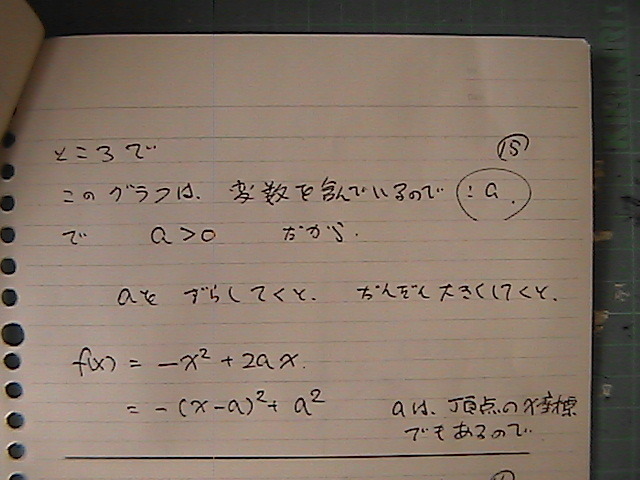 ところで
⑮
このグラフは、変数を含んでいるので : a.
で a>0 だから.
aを ずらしてくと. だんだん大きくしてくと.
f(x) = -x² + 2ax.
= -(x-a)² + a²
aは、頂点のx座標
でもあるので